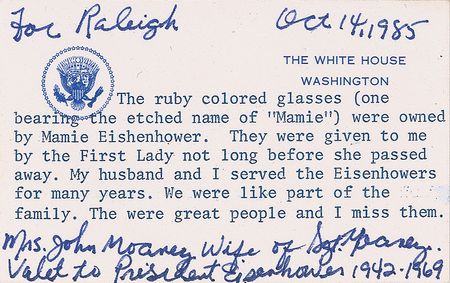 For Raleigh Oct 14, 1985
THE WHITE HOUSE
WASHINGTON
The ruby colored glasses (one
bearing the etched name of "Mamie") were owned
by Mamie Eishenhower. They were given to me
by the First Lady not long before she passed
away. My husband and I served the Eisenhowers
for many years. We were like part of the
family. The were great people and I miss them.
Mrs. John Moaney Wife of Sgt. Moaney.
Valet to President Eisenhower 1942-1969